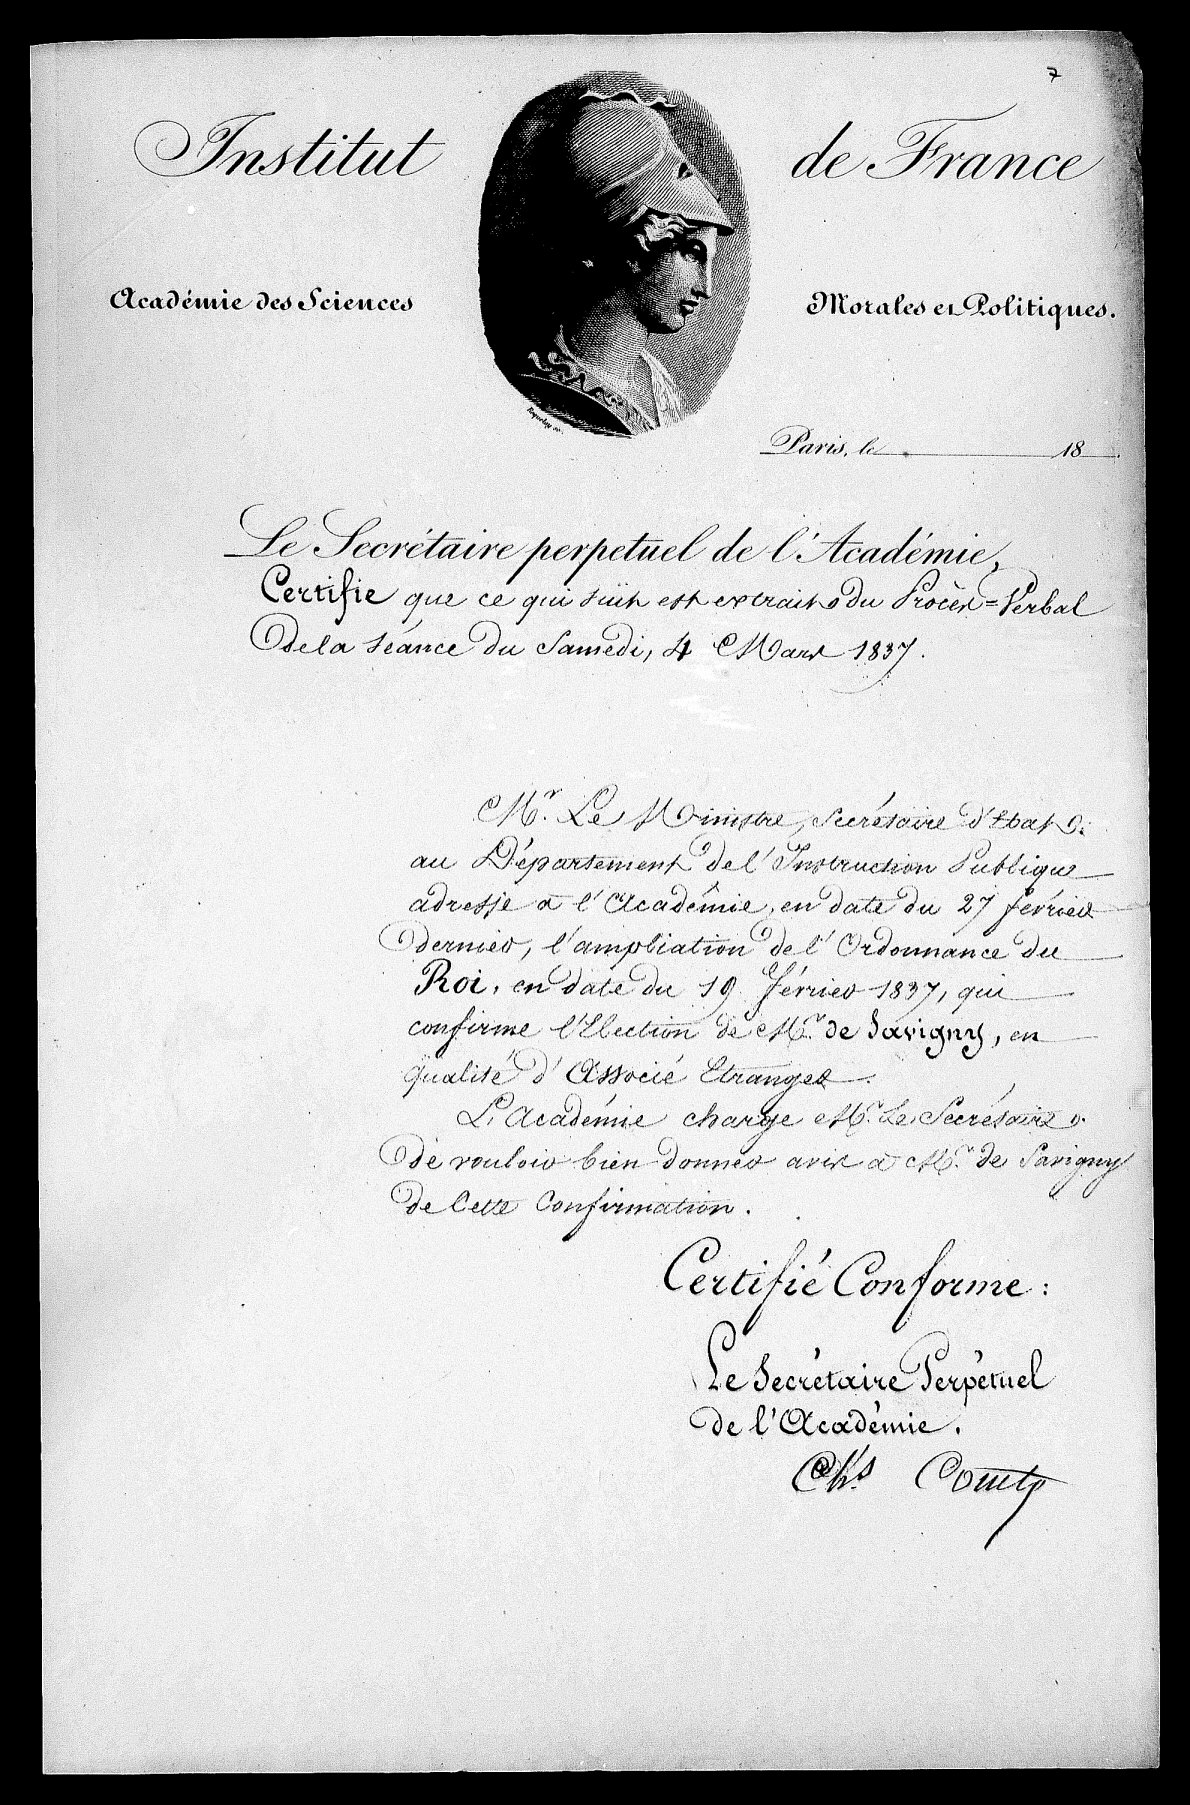 7
Institut de France
Académie des Sciences Morales et Politiques.
Paris, le 18
Le Secrétaire perpetuel de l'Académie,
Certifie que ce qui suit est extrait du Procès=Verbal
de la séance du Samedi, 4 Mars 1837.
Mr. Le Ministre, Secrétaire d'Etat
au Département de l'Instruction Publique
adresse à l'Académie, en date du 27 février
dernier, l'ampliation de l'Ordonnance du
Roi, en date du 19 février 1837, qui
confirme l'Election de Mr. de Savigny, en
qualité d'Associé Etranger.
L'Académie charge Mr. Le Secrétaire
de vouloir bien donner avis à Mr. de Savigny
de Cette Confirmation.
Certifié Conforme:
Le Secrétaire Perpétuel
de l'Académie.
Chs. Comte